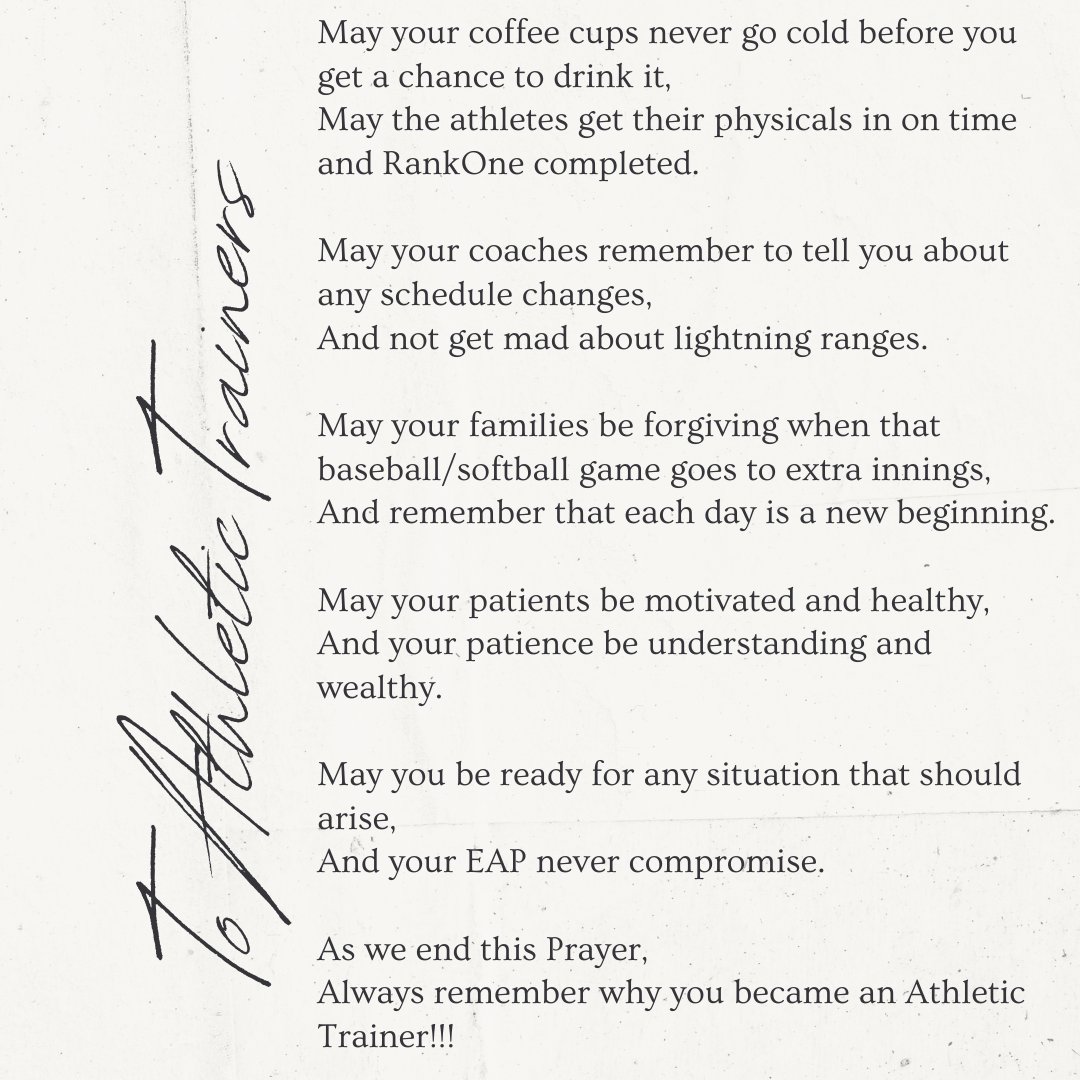 To Athletic Trainers
May your coffee cups never go cold before you
get a chance to drink it,
May the athletes get their physicals in on time
and RankOne completed.
May your coaches remember to tell you about
any schedule changes,
And not get mad about lightning ranges.
May your families be forgiving when that
baseball/softball game goes to extra innings,
And remember that each day is a new beginning.
May your patients be motivated and healthy,
And your patience be understanding and
wealthy.
May you be ready for any situation that should
arise,
And your EAP never compromise.
As we end this Prayer,
Always remember why you became an Athletic
Trainer!!!